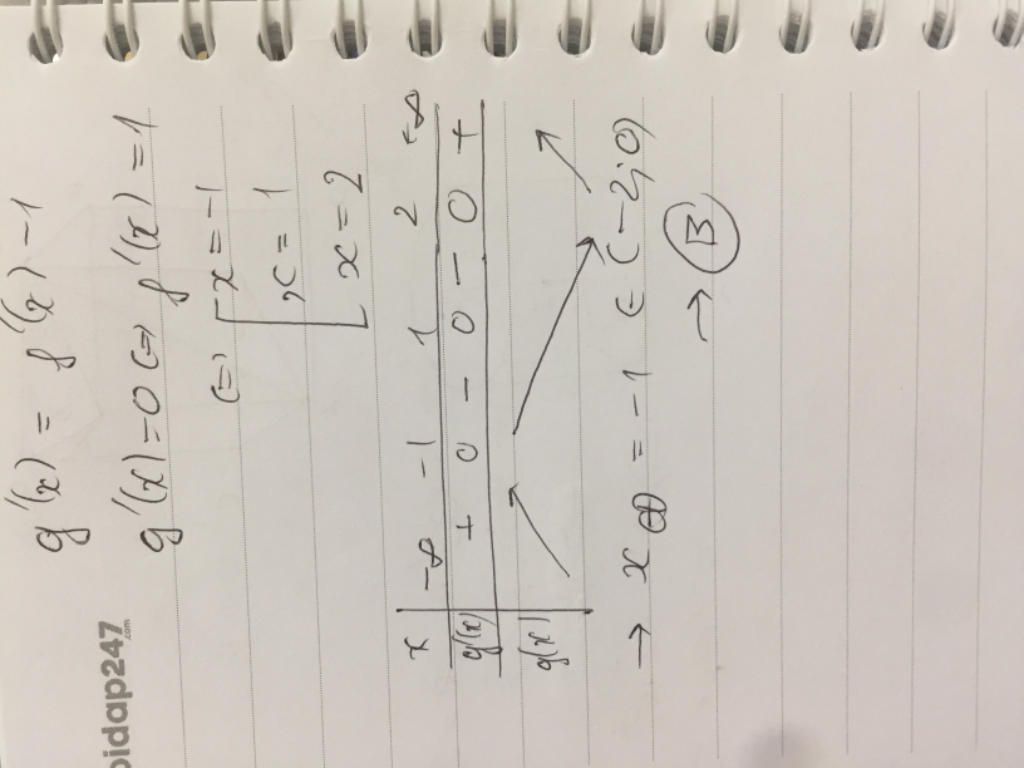 g'(x) = f'(x) -1
g'(x)=0 <=> f'(x) =1
<=> [ x=-1
x=1
x=2
x -∞ -1 1 2 +∞
g'(x) + 0 - 0 - 0 +
g(x) ↗ ↘ ↗
→ x CĐ = -1 ∈ (-2;0)
→ B
hoidap247
.com